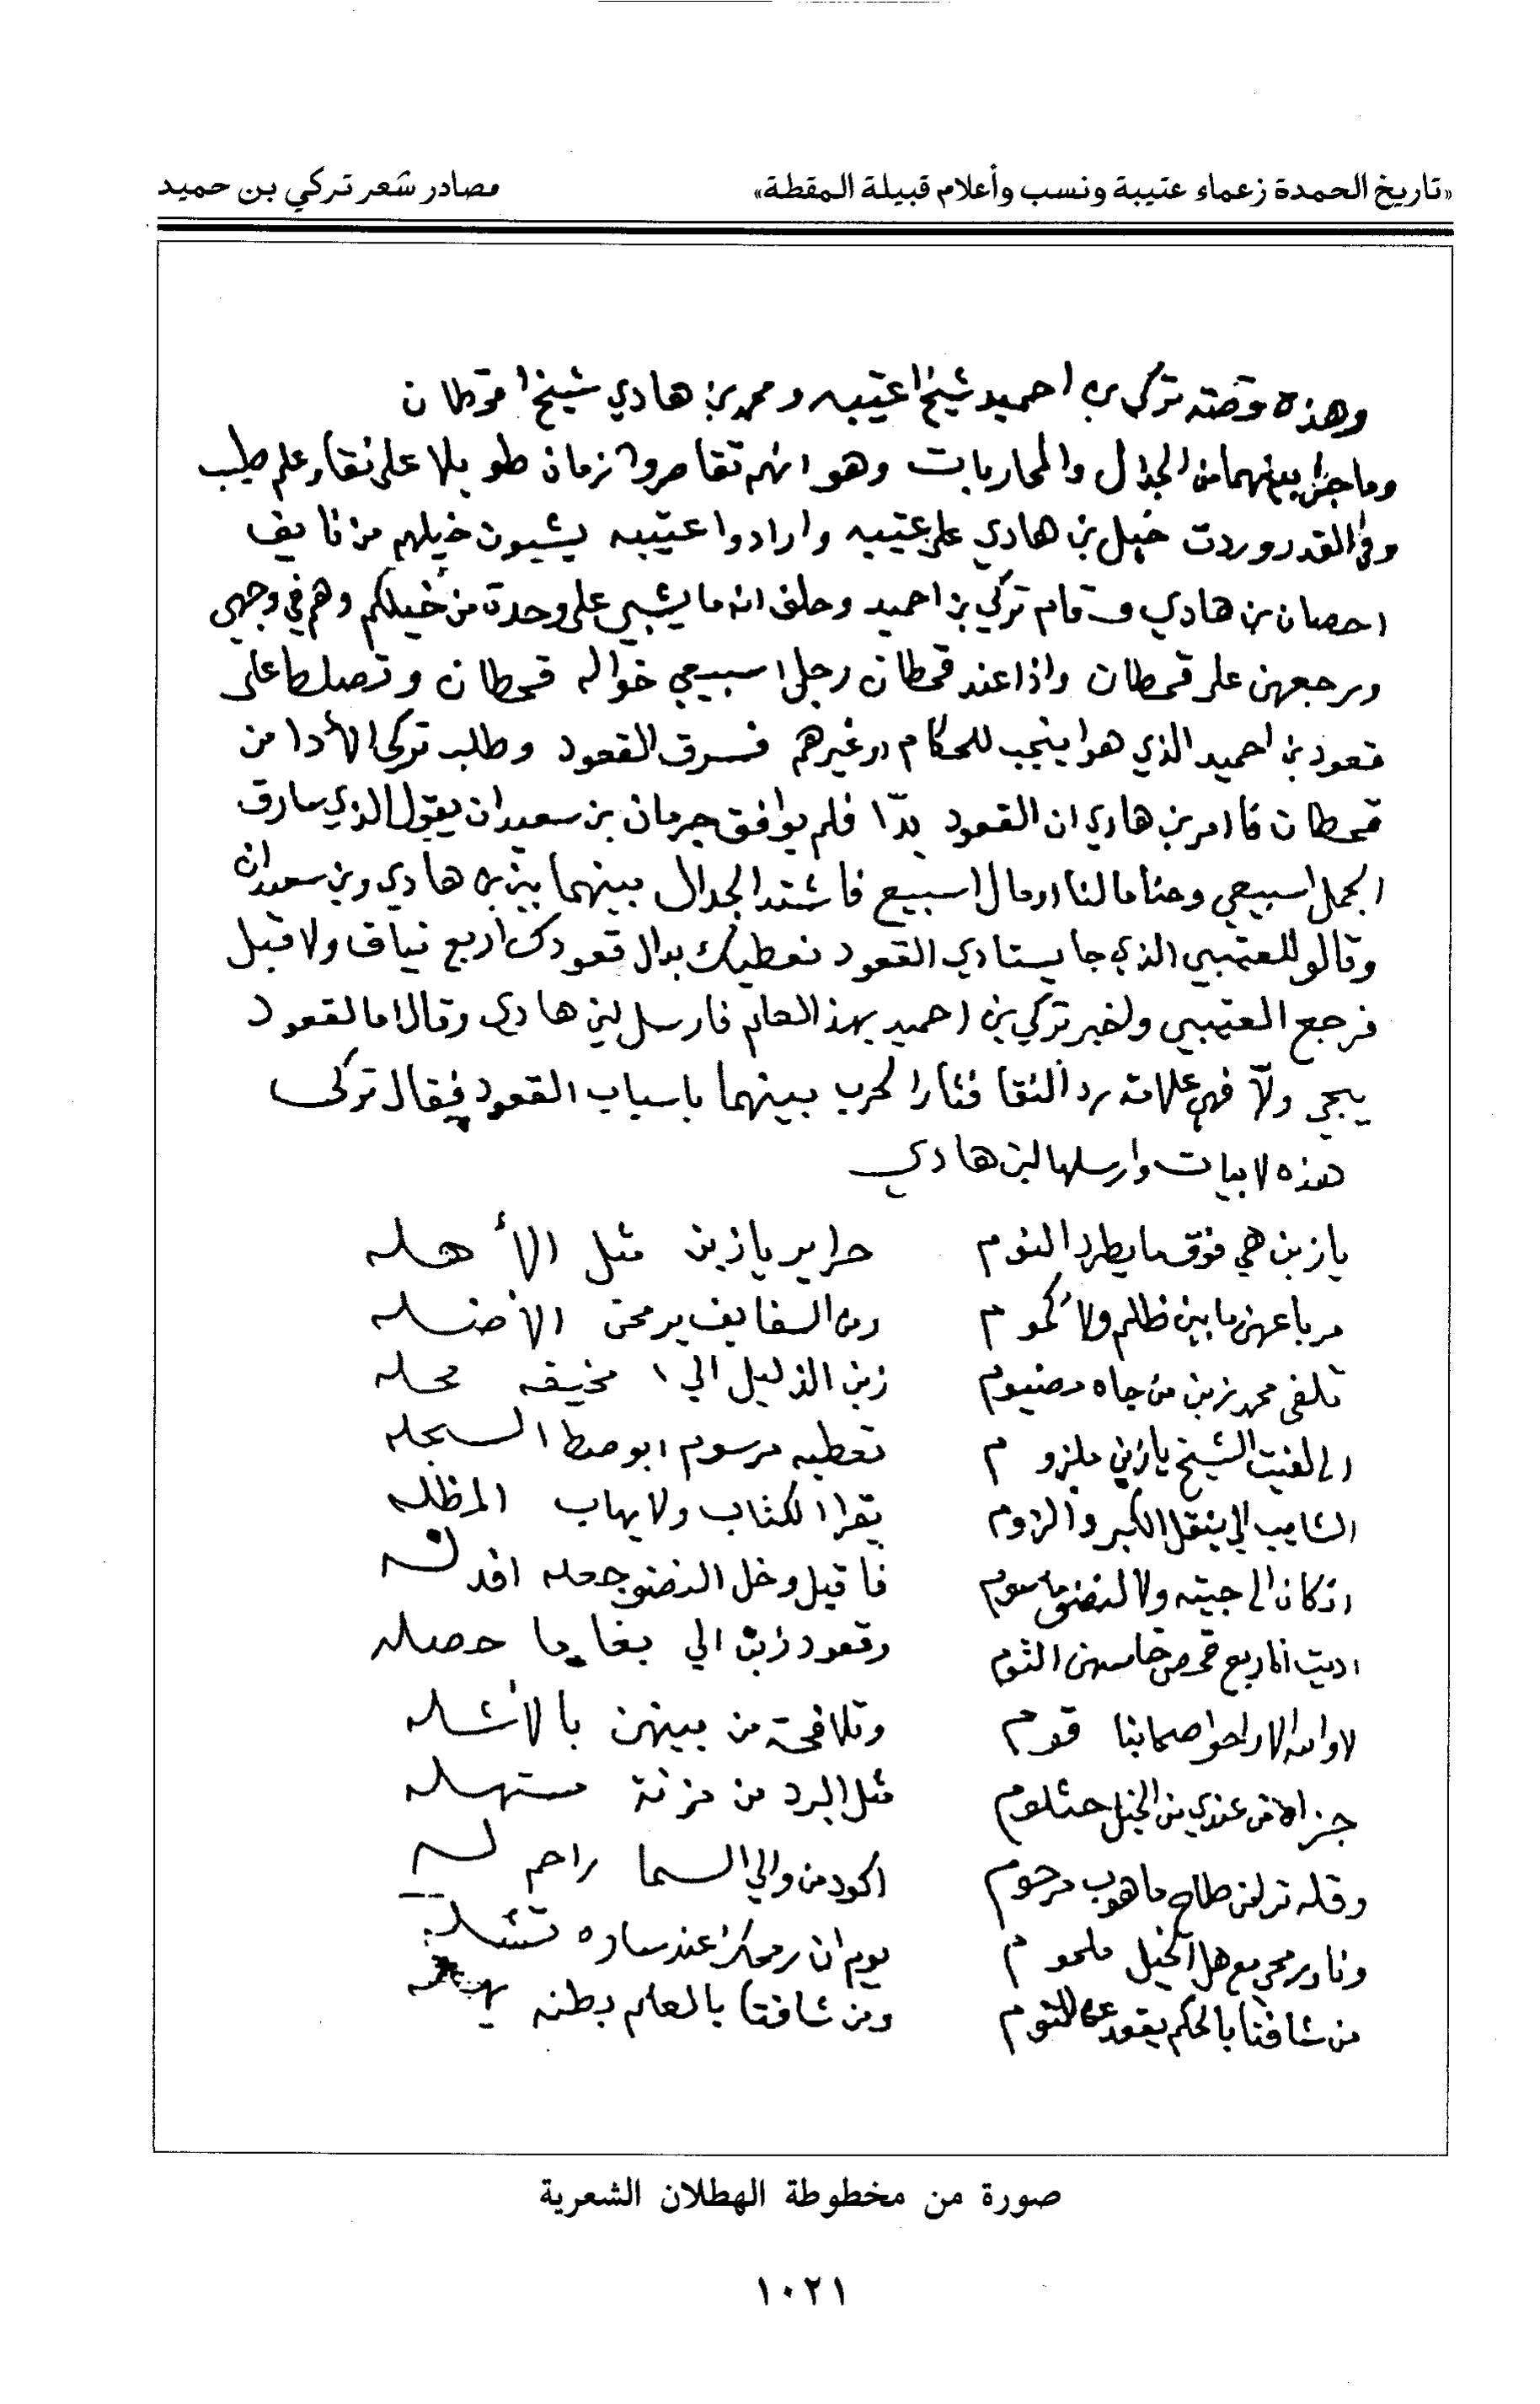 «تاريخ الحمدة زعماء عتيبة ونسب وأعلام قبيلة المقطة» مصادر شعر تركي بن حميد
وهذه قصته تركي بن احميد شيخ اعتيبه ومحمد بن هادي شيخ اقحطان
وما جرا بينهما من الجدال والمحاربات وهو انهم تقاصروا زمان طويلا على نقا وعلم طيب
وفي القدر وردت خيل بن هادي على عتيبه وارادوا عتيبه يشبون خيلهم من نايف
احصان بن هادي وقام تركي بن احميد وحلف انه ما يشبي على وحدة من خيلكم وهم في وجهي
ورجعهن على قحطان واذا عند قحطان رجل اسبيعي خواله قحطان وتصلط على
قعود بن احميد الذي هوا ينجب للحكام وغيرهم فسرق القعود وطلب تركي الأدا من
قحطان فامر بن هادي ان القعود يدّا فلم يوافق جرمان بن سعيدان يقول الذي سارق
الجمل اسبيعي وحنا مالنا ومال اسبيع فاشتد الجدال بينهما بين بن هادي وبن سعيدان
وقالو للعتيبي الذي جا يستادي القعود نعطيك بدال قعودك اربع نياق ولا قبل
فرجع العتيبي ولخبر تركي بن احميد بهذ العلم فارسل لبن هادي وقال اما لقعود
يجي ولاّ فهي علامة رد النقا فثار الحرب بينهما باسباب القعود فقال تركي
هذه لابيات وارسلها لبن هادي
يازبن هي فوق ما يطرد النوم حراير يازبن مثل الأهله
مرباعهن ما بين ظلم ولاكموم ومن السفايف يرمحن الأضله
تلفي محمد زبن من جاه مضيوم زبن الذليل الي ا مخيفه محله
الى لفيت الشيخ يازبن ملزوم تعطيه مرسوم ابو صطا السجله
الشايب الي ينقل الكبر والزوم يقرا الكتاب ولا يهاب المظله
اذكان الى جيته ولا لنضو مسوم فاقبل وخل النضو جعله افدله
اديت انا ربع قحص خامسهن الثوم وقعود زبن الي بغا ما حصله
لاوالله الا راحوا صحابنا قوم وتلافحة من بينهن بالأشله
جزاه من عندي من الخيل حثلوم مثل البرد من مزنة مستهله
وقله ترا من طاح ماهوب مرحوم اكود من والي السما راحم له
ونا ورمحي مع هل الخيل ملحوم يوم ان رمحك عند ساره تشله
من شافنا بالحكم يقعد عن النوم ومن شافنا بالعلم بطنه
صورة من مخطوطة الهطلان الشعرية
١٠٢١